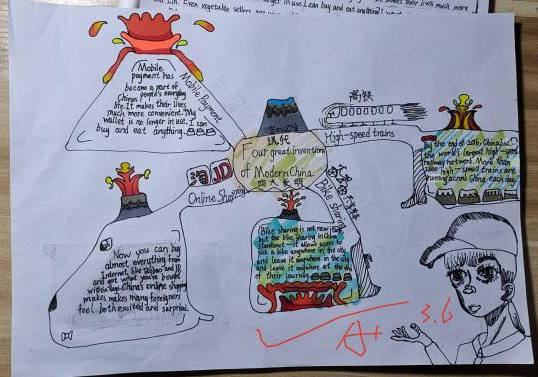 Lin. Even vegetable sellers
in use. I can buy and eat anything!
makes their lives much more
Mobile
payment has
become a part of
Chinas people's everyday
life. It makes their lives
much more convenient. My
wallet is no longer in use. I can
buy and eat anything.
Mobile Payment
高铁
High-speed trains
By the end of 2016, China
the world's high speed
railway network. More than
high-speed trains are
running across China each day
Four great invention
of Modern China.
四大发明
淘 JD
Online Shopping
Bike sharing
Now you can buy
almost everything from
Internet like Taobao and JD
and get what you've bought
within days. China's online shopping
makes makes many foreigners
feel both excited and surprised.
Bike sharing is not new
but the bike sharing in China
it allows users to
pick a bike anywhere in the city
and leave it anywhere in the city
and leave it anywhere at the end
of their journey
A+
3.6